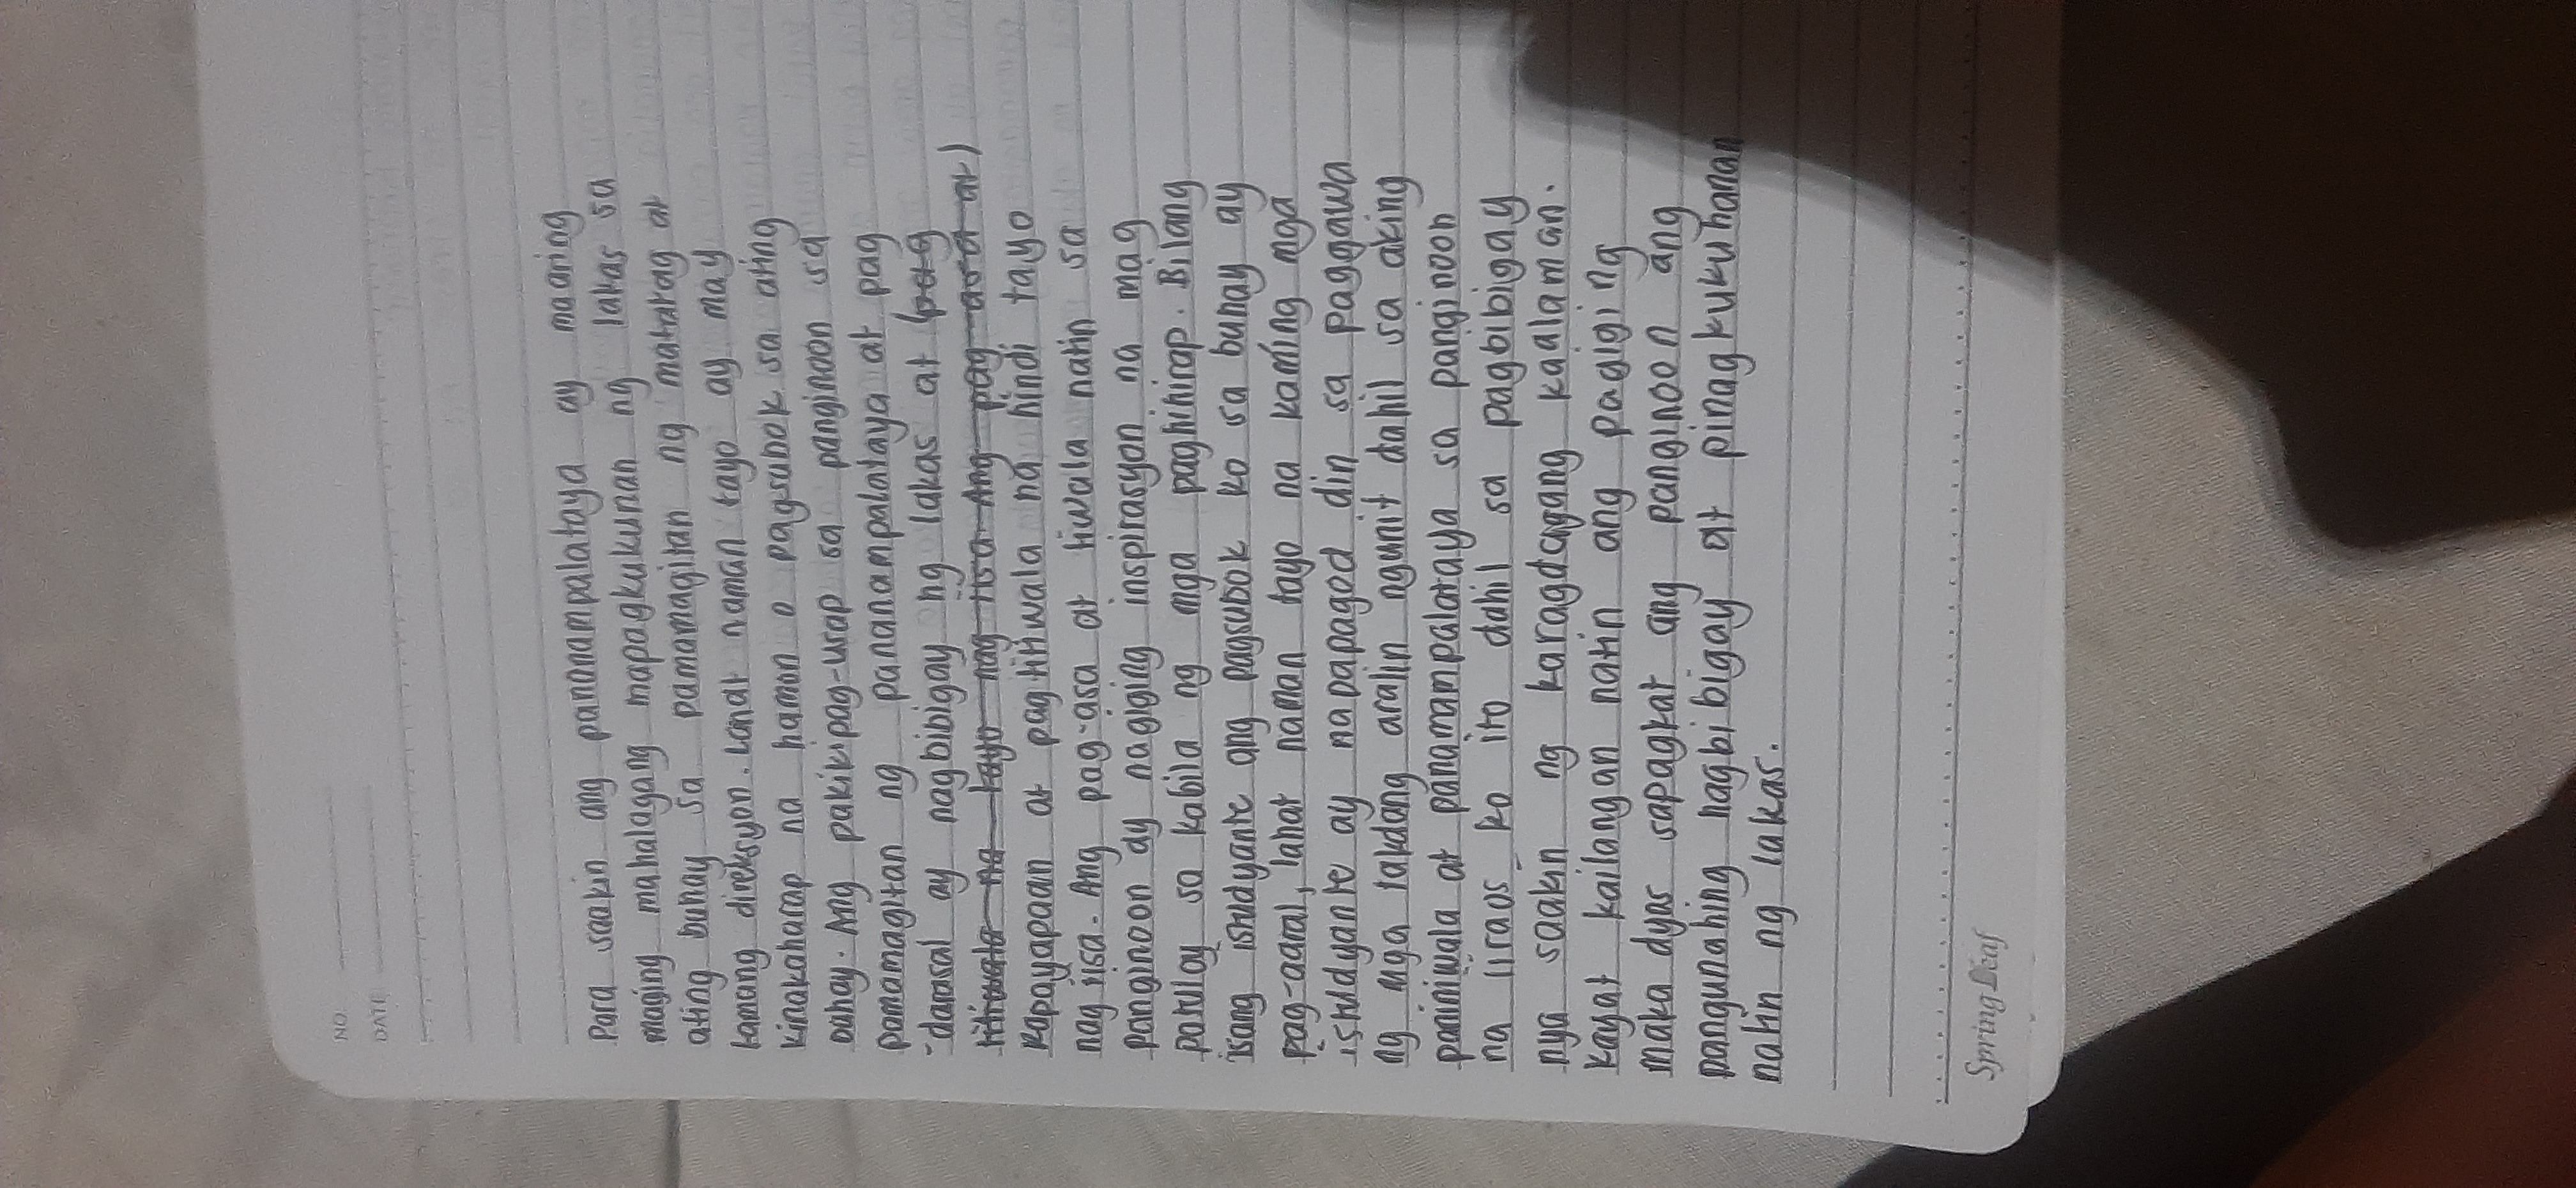 NO.
DATE
Para saakin ang pananampalataya ay maaring
maging mahalagang mapagkukunan ng lakas sa
ating buhay sa pamamagitan ng matatag at
tamang direksyon. Lahat naman tayo ay may
kinakaharap na hamon o pagsubok sa ating
buhay. Ang pakikipag-usap sa panginoon sa
pamamagitan ng pananampalataya at pag
-darasal ay nagbibigay ng lakas at (pag
titiwala na tayo nag iisa Ang pag-asa at)
kapayapaan at pagtitiwala na hindi tayo
nag iisa. Ang pag-asa at tiwala natin sa
panginoon ay nagiging inspirasyon na mag
patuloy sa kabila ng mga paghihirap. Bilang
isang istudyante ang pagsubok ko sa buhay ay
pag-aaral, lahat naman tayo na kaming mga
istudyante ay napapagod din sa paggawa
ng mga takdang aralin ngunit dahil sa aking
paniniwala at panamampalataya sa panginoon
na iiraos ko ito dahil sa pagbibigay
nya saakin ng karagdagang kaalaman.
kayat kailangan natin ang pagiging
maka dyos sapagkat ang panginoon ang
pangunahing nagbibigay at pinagkukuhanan
natin ng lakas.
Spring Leaf